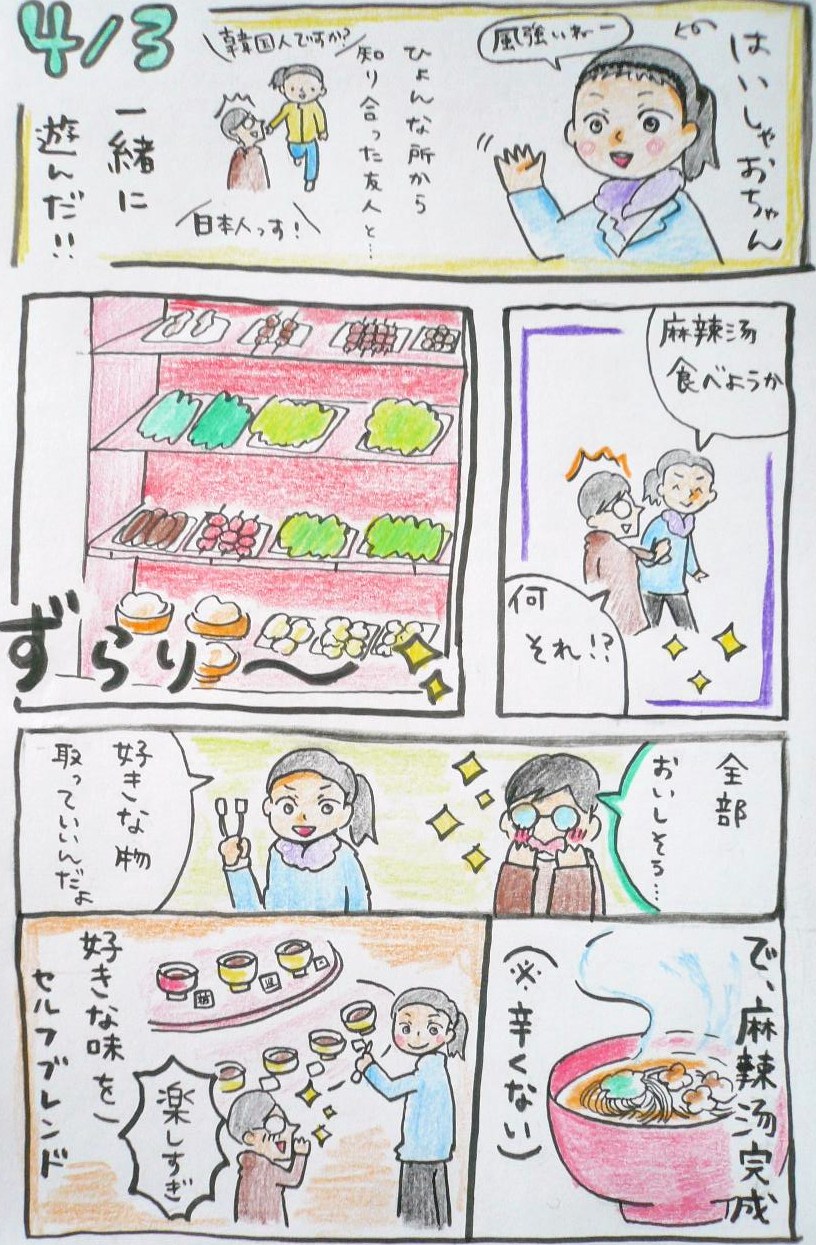 4/3
はいしゃおちゃん
風強いねー
ひょんな所から
知り合った友人と…
韓国人ですか?
日本人っす!
一緒に
遊んだ!!
麻辣汤
食べようか
何
それ!?
ずらり〜
全部
おいしそう…
好きな物
取っていいんだよ
で、麻辣汤完成
(※辛くない)
好きな味を
セルフブレンド
楽しすぎ